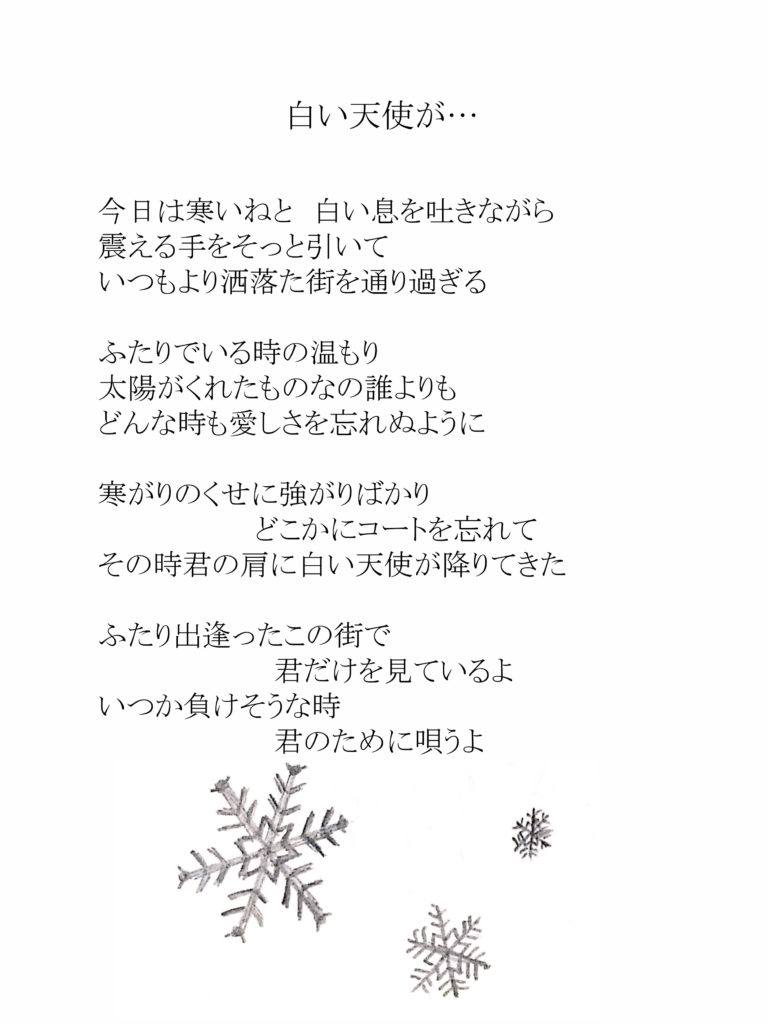 白い天使が…
今日は寒いねと　白い息を吐きながら
震える手をそっと引いて
いつもより洒落た街を通り過ぎる
ふたりでいる時の温もり
太陽がくれたものなの誰よりも
どんな時も愛しさを忘れぬように
寒がりのくせに強がりばかり
どこかにコートを忘れて
その時君の肩に白い天使が降りてきた
ふたり出逢ったこの街で
君だけを見ているよ
いつか負けそうな時
君のために唄うよ